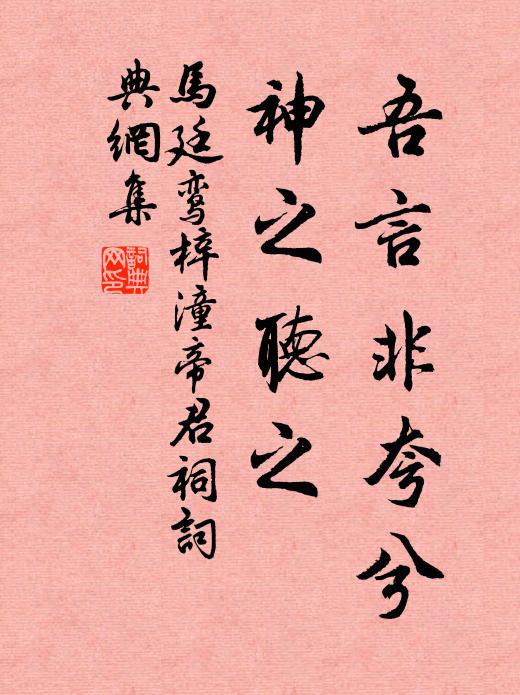 吾言非夸兮
神之聽之
馬廷鸾梓潼帝君祠詞
典網集
詞典網印